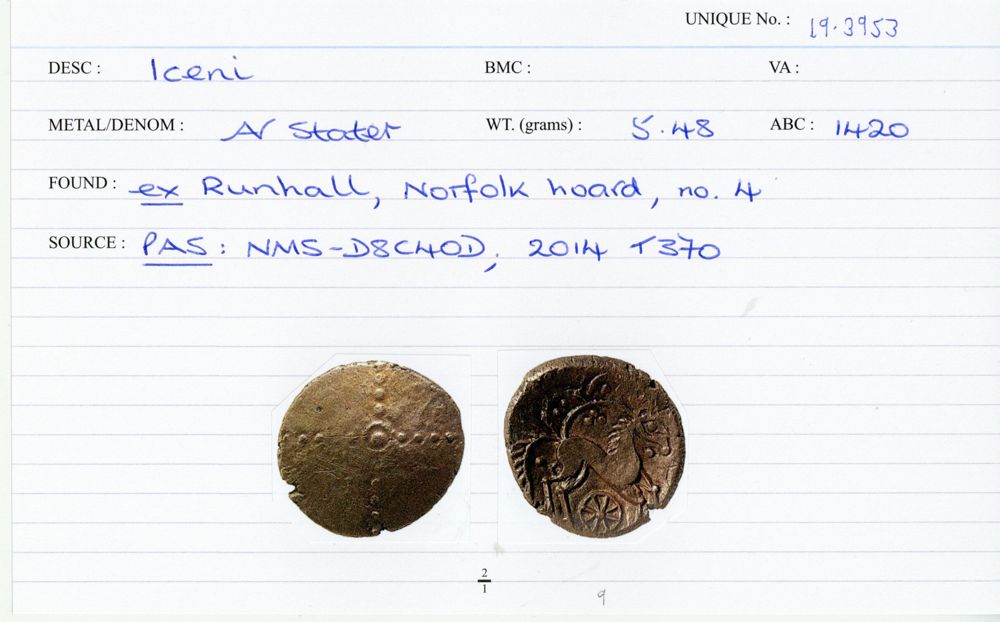 UNIQUE No. : 19.3953
DESC : Iceni BMC : VA :
METAL/DENOM : AV Stater WT. (grams) : 5.48 ABC : 1420
FOUND : ex Runhall, Norfolk hoard, no. 4
SOURCE : PAS : NMS-D8C40D, 2014 T370
2
1
9